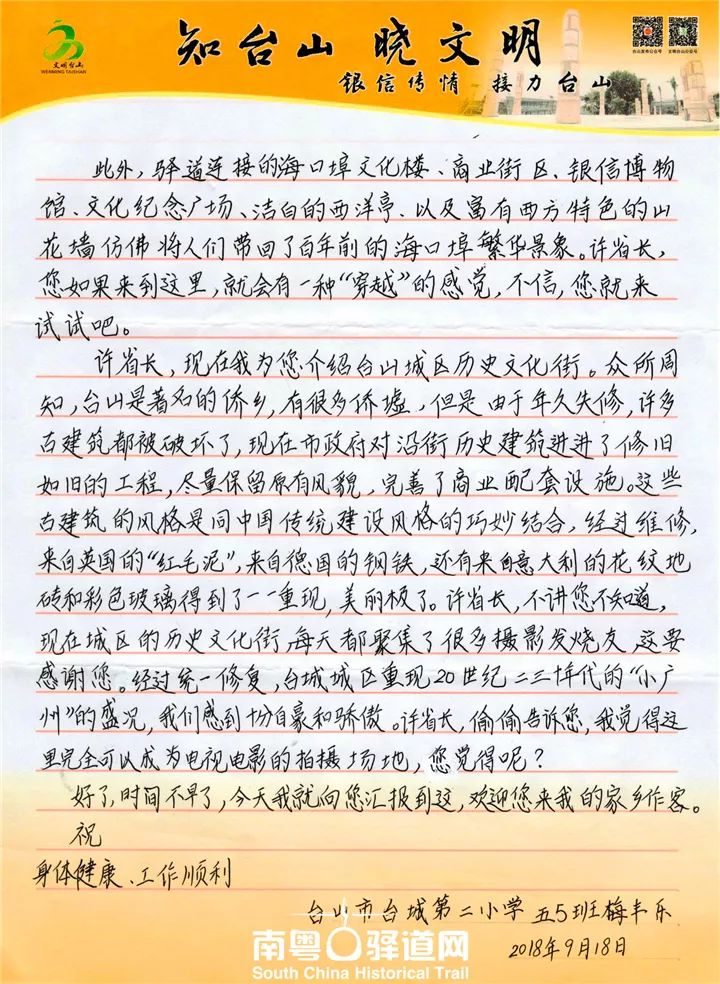 文明台山
WENMING TAISHAN
知台山 晓文明
银信传情 接力台山
此外，驿道连接的海口埠文化楼、商业街区、银信博物
馆、文化纪念广场、洁白的西洋亭、以及富有西方特色的山
花墙仿佛将人们带回了百年前的海口埠繁华景象。许省长，
您如果来到这里，就会有一种“穿越”的感觉，不信，您就来
试试吧。
许省长，现在我为您介绍台山城区历史文化街。众所周
知，台山是著名的侨乡，有很多侨墟，但是由于年久失修，许多
古建筑都被破坏了，现在市政府对沿街历史建筑进进了修旧
如旧的工程，尽量保留原有风貌，完善了商业配套设施。这些
古建筑的风格是同中国传统建设风格的巧妙结合，经过维修，
来自英国的“红毛泥”，来自德国的钢铁，还有来自意大利的花纹地
砖和彩色玻璃得到了一一重现，美丽极了。许省长，不讲您不知道，
现在城区的历史文化街，每天都聚集了很多摄影发烧友，这要
感谢您。经过统一修复，台城城区重现20世纪二三十年代的“小广
州”的盛况，我们感到十分自豪和骄傲。许省长，偷偷告诉您，我觉得这
里完全可以成为电视电影的拍摄场地，您觉得呢？
好了，时间不早了，今天我就向您汇报到这，欢迎您来我的家乡作客。
祝
身体健康、工作顺利
台山市台城第二小学 五5班梅丰乐
2018年9月18日
南粤古驿道网
South China Historical Trail